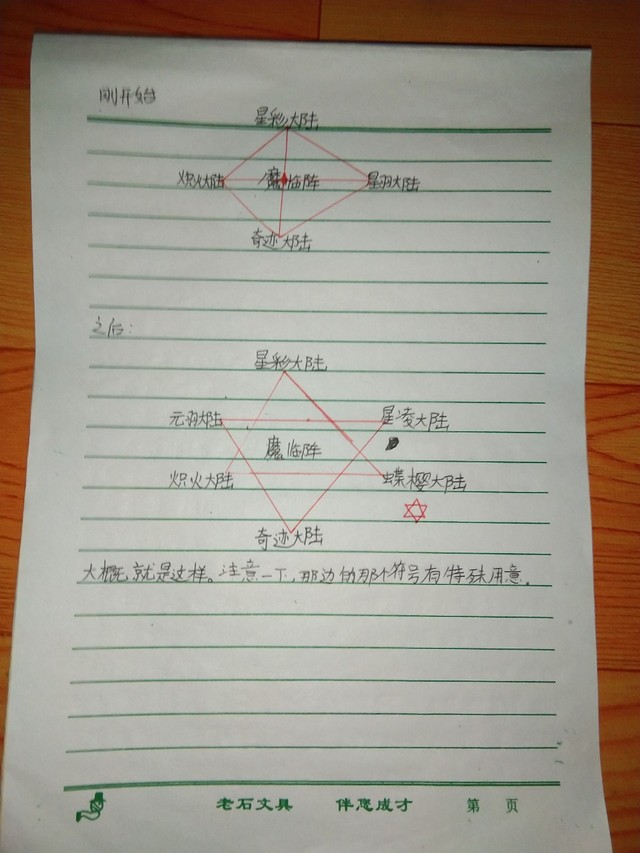 刚开始
星彩大陆
炽火大陆 魔临阵 星羽大陆
奇迹大陆
之后:
星彩大陆
元羽大陆 星凌大陆
魔临阵
炽火大陆 蝶樱大陆
奇迹大陆
大概就是这样。注意一下,那边的那个符号有特殊用意.
老石文具 伴您成才 第 页